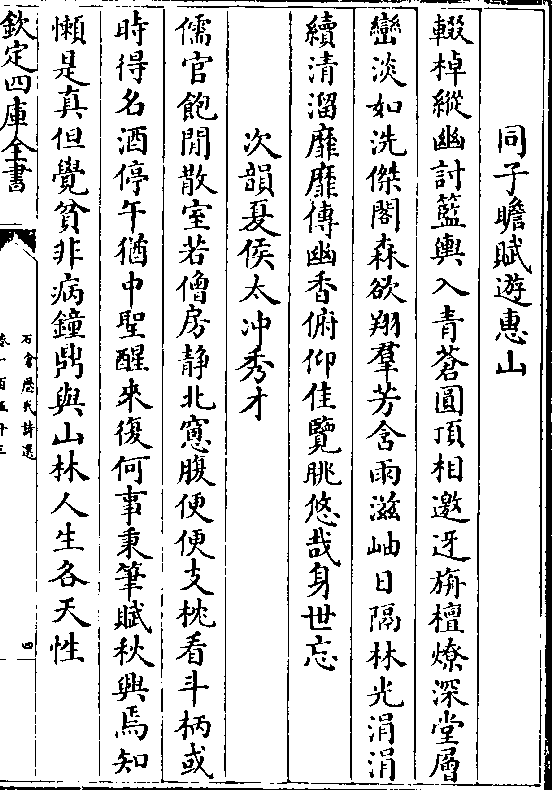 同子瞻賦遊惠山
輟棹縱幽討籃輿入青蒼圓頂相邀迓旃檀燎深堂層
巒淡如洗傑閣森欲翔羣芳含雨滋岫日隔林光涓涓
續清溜靡靡傳幽香俯仰佳覽眺悠哉身世忘
次韻夏侯太冲秀才
儒官飽閒散室若僧房静北窻腹便便支枕看斗柄或
時得名酒停午猶中聖醒來復何事秉筆賦秋興焉知
懶是真但覺貧非病鐘鼎與山林人生各天性
欽定四庫全書
石倉歷代詩選
卷一百五十三
四